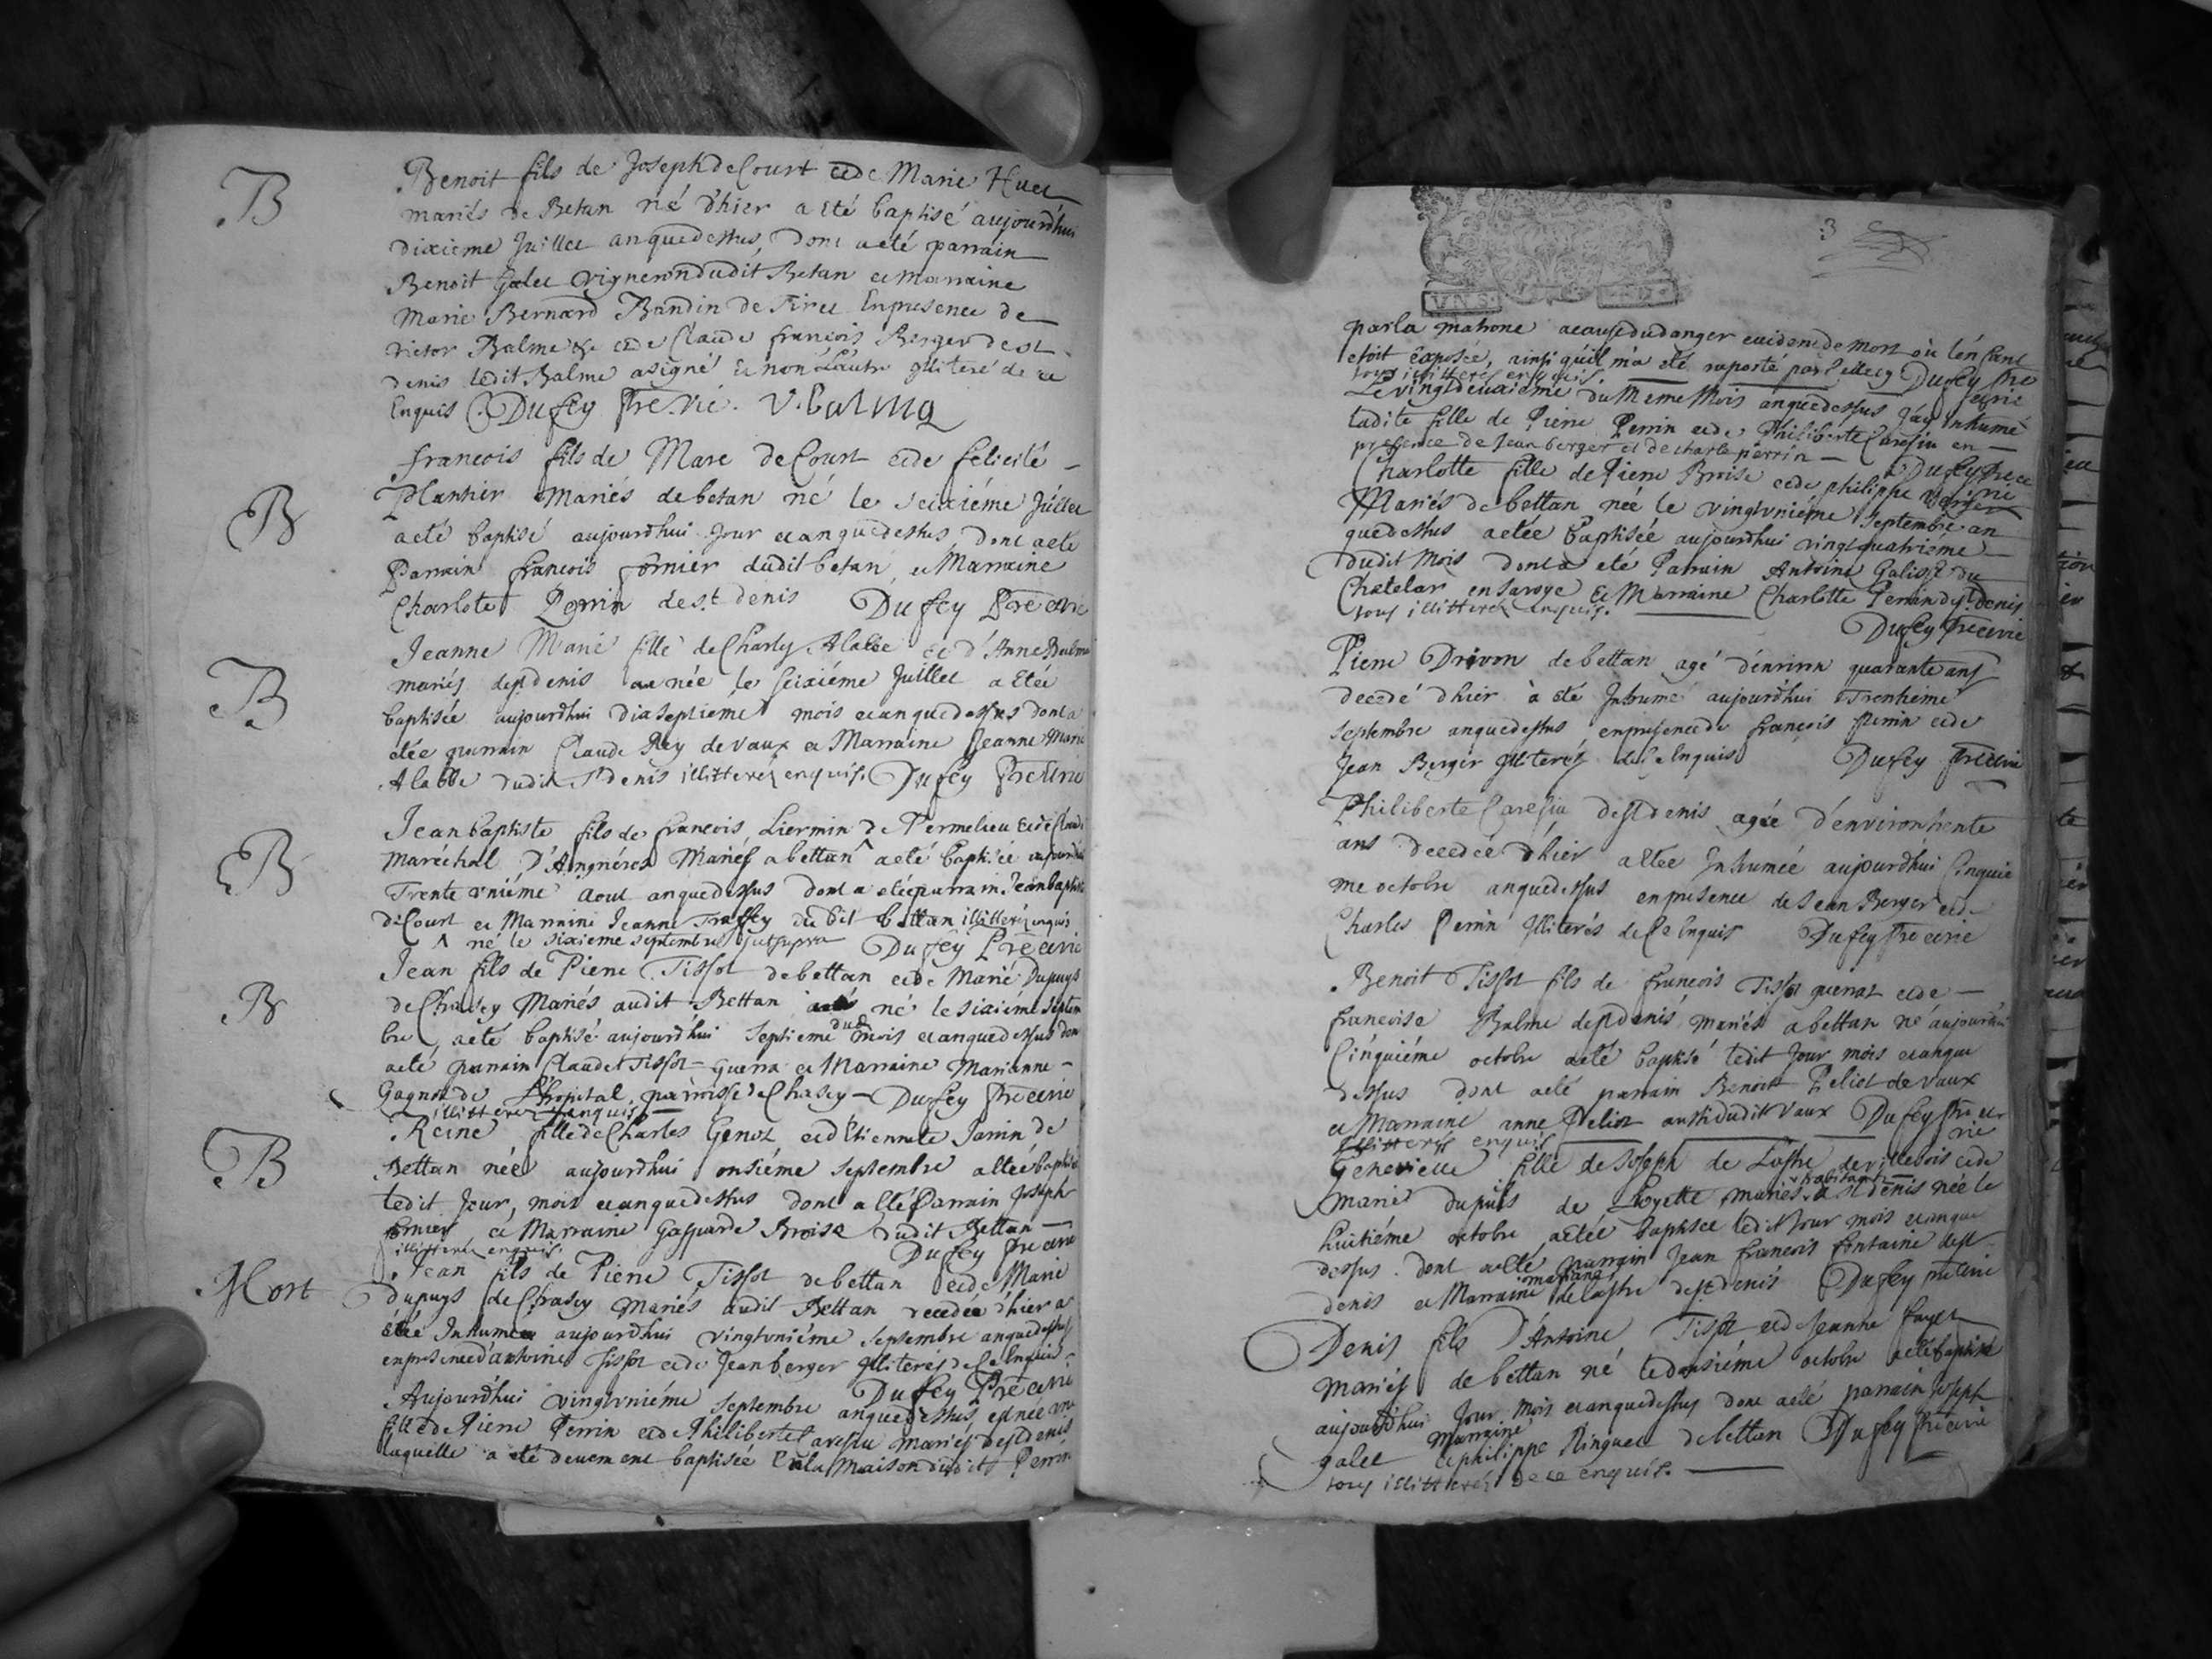 B
Benoit fils de Joseph deCourt et de Marie Huet
mariés de Betan né d'hier a été baptisé aujourd'hui
dixieme Juillet anquedessus, dont a été parrain
Benoit Galet vigneron dudit Betan et marraine
Marie Bernard Bandin de Tiret Enpresence de
victor Balme et de Claude françois Berger de st
denis ledit Balme a signé et non L'autre illiteré de ce
Enquis Dufey Pre vic. V. balma
B
francois fils de Marc deCourt et de felicité
Plantier mariés de betan né le seixiéme Juillet
a eté baptisé aujourd'hui Jour et anquedessus dont a eté
Parrain francois fornier dudit betan et Marraine
Charlote Perrin de st denis Dufey Pre cvic
B
Jeanne Marie fille de Charles Alabée et d'Anne Balme
mariés de st denis née le seixiéme Juillet a été
baptisée aujourd'hui dixseptieme mois et anquedessus dont a
etée parrain Claude Rey de vaux et Marraine Jeanne Marie
Alabbe dudit st denis illitterez enquis. Dufey Pre cvic
B
Jean baptiste fils de francois Liermin de Permelieu et de
Maréchal D'Angnéres Mariés a bettan ^ a eté baptisée aujourd'hui
Trente vniéme Aout anquedessus dont a eté parrain Jean baptiste
deCourt et Marraine Jeanne Traffey dudit bettan illitterez enquis
^ né le sixieme septembre jutsupra Dufey Pre cvic
B
Jean fils de Pierre Tissot de bettan et de Marie Dupuys
de Chasey Mariés audit Bettan né le sixiéme septem
bre a eté baptisé aujourd'hui septieme dud mois et anquedessus dont
a eté parrain Claude Tissot guerra et Marraine Marianne
Gagnot de L'hopital parroisse de Chasey Dufey Pre cvic
illitterez enquis
B
Reine fille de Charles Genot et d'Etiennete Janin de
Bettan née aujourd'hui onsiéme septembre a eteé baptisé
ledit Jour, mois et anquedessus dont a eté Parrain Joseph
fornier et Marraine Gaspard Broise dudit Bettan
illitterez enquis. Dufey Pre cvic
Mort
Jean fils de Pierre Tissot de bettan et de Marie
dupuys de Chasey mariés audit Bettan decedée d'hier a
été Inhumée aujourd'hui vingtvniéme septembre anquedessus
enpresence d'antoine Tissot et de Jean berger illiterés de Ce Enquis
Dufey Pre cvic
Aujourd'hui vingtvniéme septembre anquedessus, est née vne
fille de Pierre Perrin et de Philiberte Caresiu mariés de st denis
laquelle a eté deuement baptisée En la Maison dudit Perrin
3
par la matrone a cause du danger euident de mort où l'enfant
etoit exposée, ainsi qu'il m'a eté raporté par Celle cy Dufey Pre
tous illitterés enquis. cvic
Le vingtdeuxiéme du Meme Mois anquedessus J'ay Inhumé
ladite fille de Pierre Perrin et de Philiberte Caresiu en
presence de Jean berger et de charle perrin Dufey Pre c
vic
Charlotte fille de Pierre Broise et de philippe Berger
Mariés de bettan née le vingtvniéme septembre an
quedessus a etée baptisée aujourd'hui vingtquatriéme
dudit Mois dont a eté Parrain Antoine Galisse du
Chatelar en savoye et Marraine Charlotte Perrin de st denis
tous illitterez enquis. Dufey Pre cvic
Pierre Drivon de bettan agé d'environ quarante ans
decedé d'hier à eté Inhumé aujourd'hui Trentieme
septembre anquedessus, enpresence de françois Perrin et de
Jean Berger Illiterés de Ce Enquis Dufey Pre cvic
Philiberte Caresiu de st denis agée d'environ trente
ans decedée d'hier a etée Inhumée aujourd'hui Cinquié
me octobre anquedessus enpresence de Jean Berger et de
Charles Perrin Illiterés de Ce Enquis Dufey Pre cvic
Benoit Tissot fils de francois Tissot guerat et de
francoise Balme de st denis mariés a bettan né aujourd'hui
Cinquiéme octobre a eté baptisé ledit Jour mois et anque
dessus dont a eté parrain Benoit Peliot de vaux
et Marraine anne Peliot aussi dudit vaux Dufey Pre c
illitterés enquis vic
Genevieve fille de Joseph de Lastre de villebois et de
marie dupuis de Loyette mariés habitant a st denis née le
huitiéme octobre a etée baptisée ledit Jour mois et anque
dessus. dont a eté parrain Jean francois fontaine de st
denis et Marraine mariane delastre de st denis Dufey Pre cvic
Denis fils D'Antoine Tissot et de Jeanne fayet
mariés de bettan né le dousiéme octobre a eté baptisé
aujourd'hui Jour, Mois et anquedessus dont a eté parrain Joseph
galet et marraine philippe Ringuet de bettan Dufey Pre cvic
tous illitterés de ce enquis.